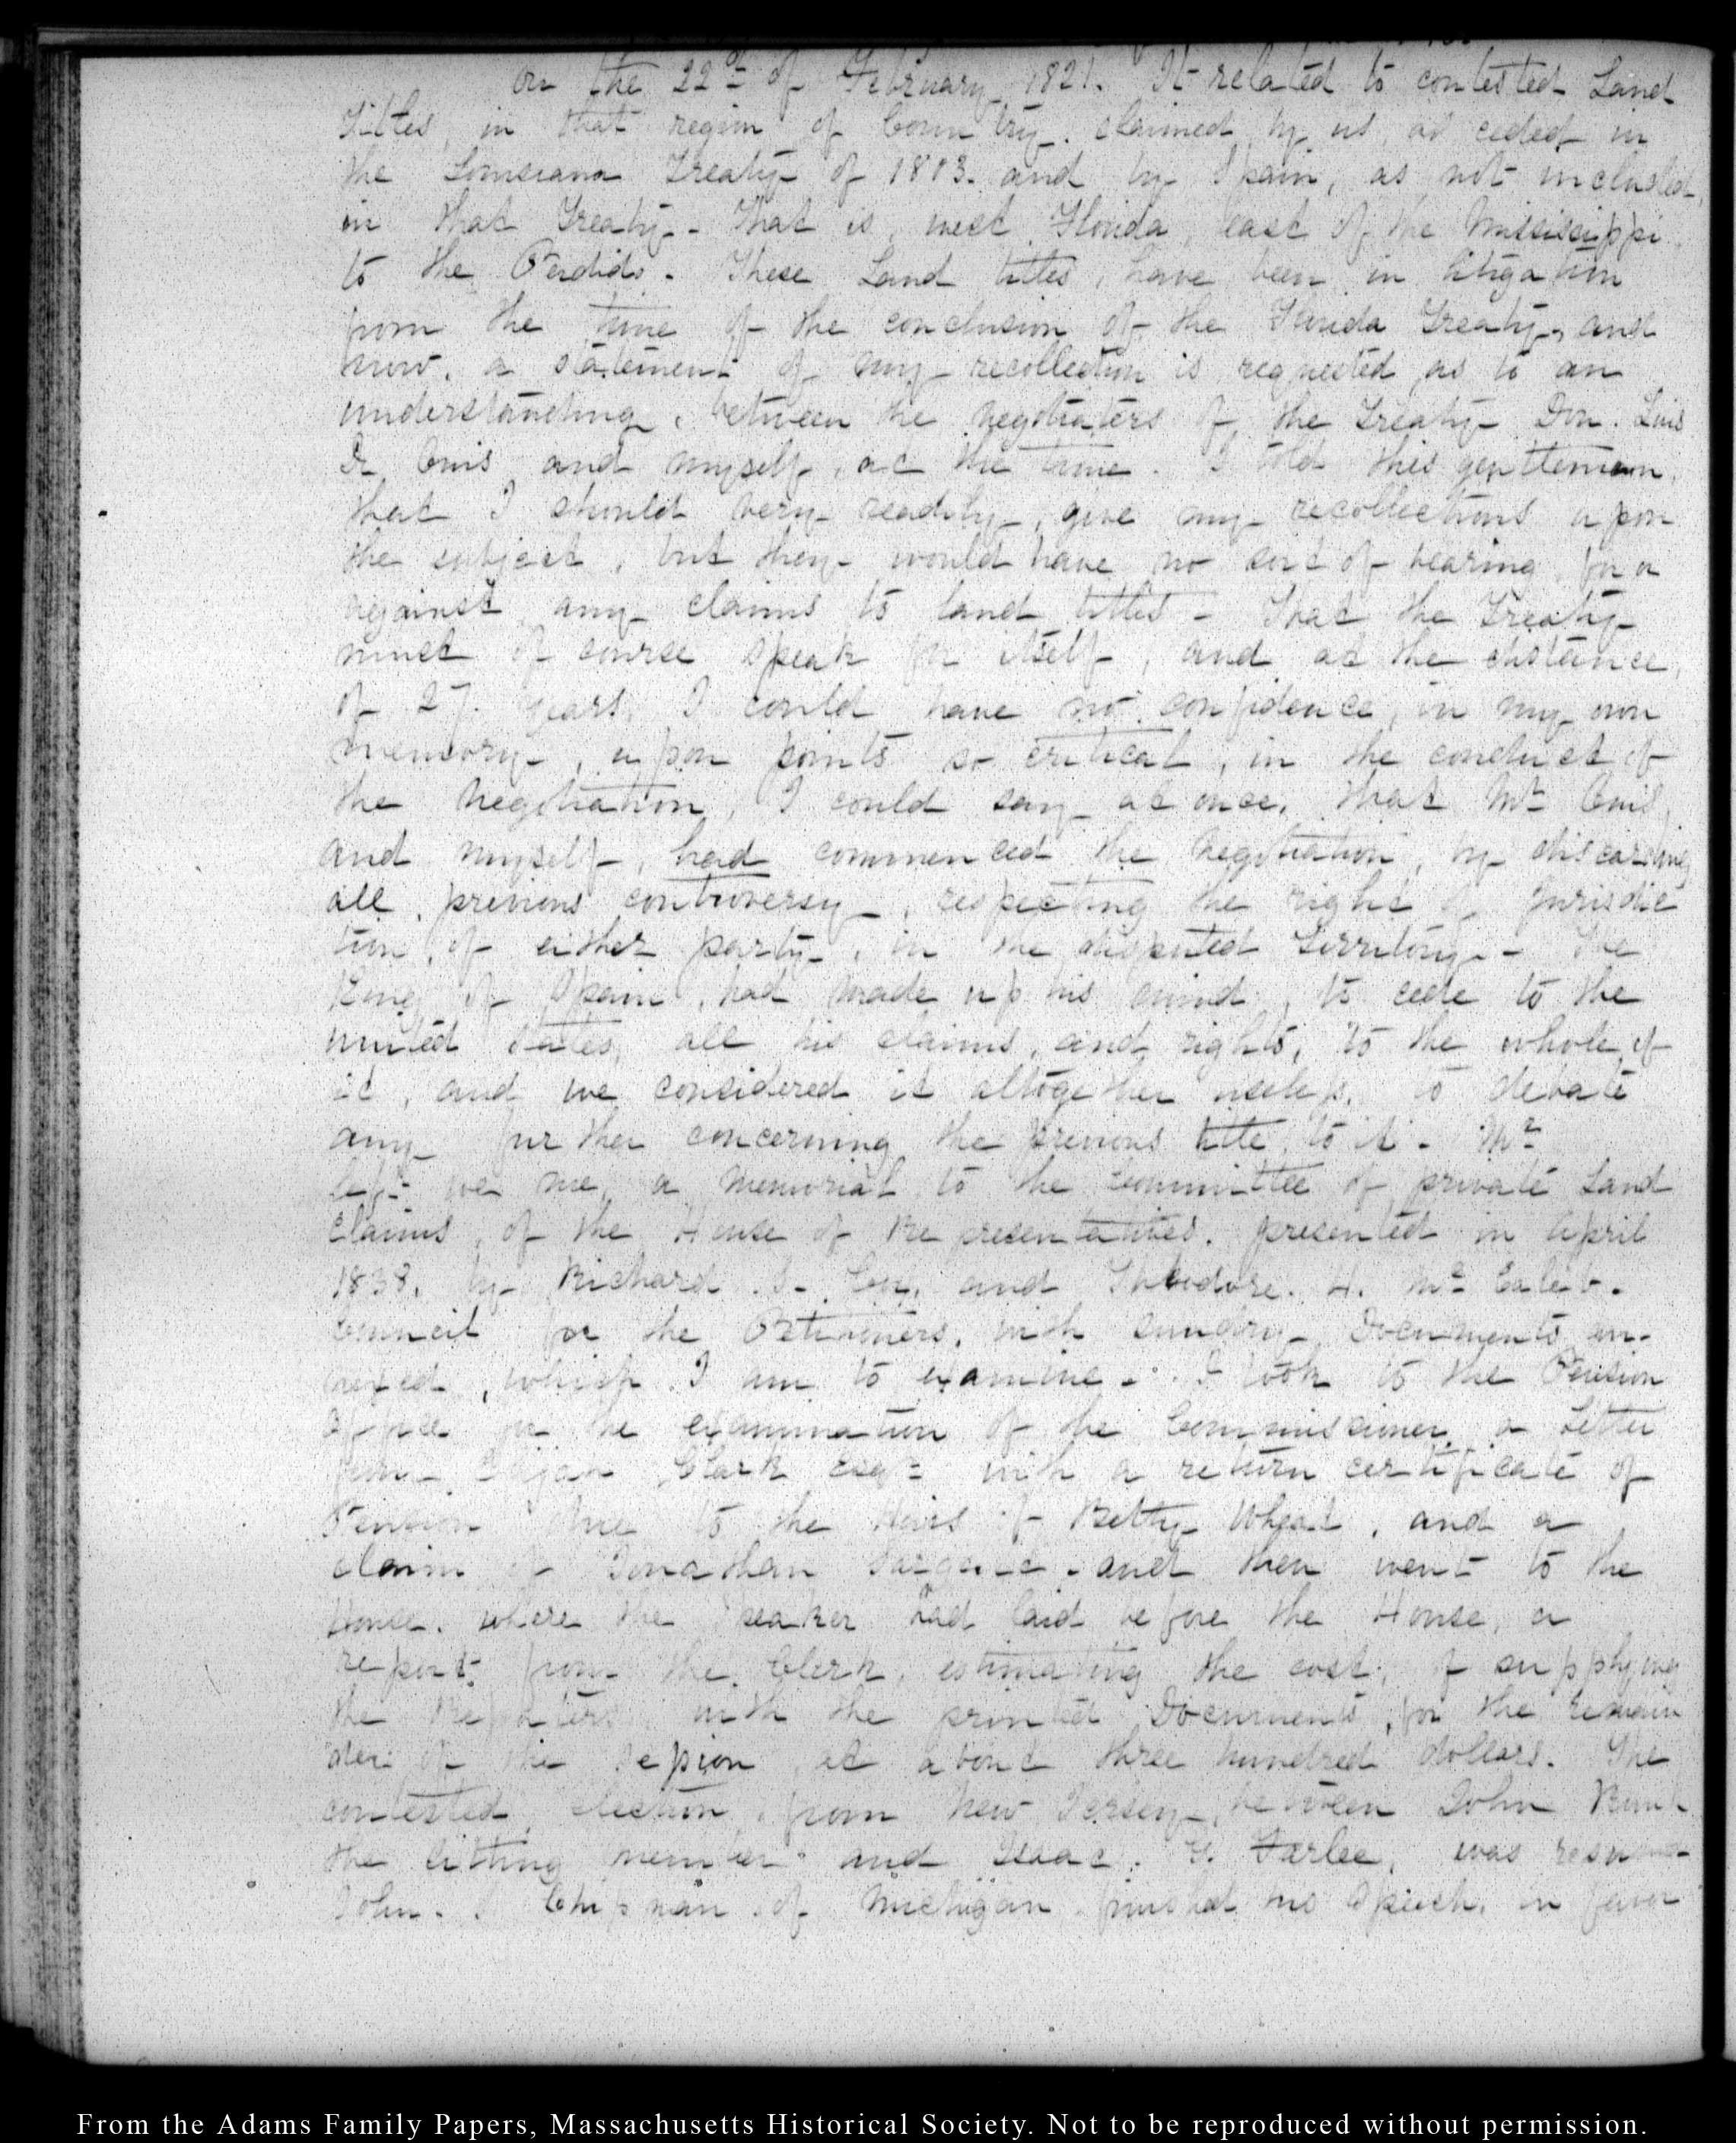 on the 22d of February 1821. It related to contested Land
Titles, in that region of Country, claimed by us, as ceded in
the Louisiana Treaty of 1803. and by Spain, as not included,
in that Treaty- That is, west Florida, east of the Mississippi
to the Perdido. These Land titles, have been in litigation
from the time of the conclusion of the Florida Treaty, and
now, a statement of my recollection is requested, as to an
understanding, between the negotiaters of the Treaty Don Luis
De Onis and myself, at the time. I told this gentleman,
that I should very readily, give my recollections upon
the subject, but they would have no sort of bearing, for or
against any claims to land titles- That the Treaty
must of course speak for itself, and at the distance,
of 27. years, I could have no confidence, in my own
memory, upon points so critical, in the conduct of
the negotiation, I could say at once, that Mr. Onis,
and myself, had commenced the negotiation, by discarding
all previous controversy, respecting the right of jurisdic
tion, of either party, in the disputed Territory- The
King of Spain, had made up his mind, to cede to the
United States, all his claims, and rights, to the whole of
it, and we considered it altogether useless, to debate
any further concerning the previous title to it. Mr
left with me, a memorial to the Committee of private Land
Claims, of the House of Representatives, presented in April
1838, by Richard S. Coxe, and Theodore. H. Mc Caleb.
Council for the Petitioners, with sundry Documents an-
nexed, which I am to examine- I took to the Pension
Office for the examination of the Commissioner, a Letter
from Clark Esqr with a return certificate of
Pension due to the Heirs of Betty Wheat, and a
claim of Jonathan Sargent- and then went to the
House, where the Speaker had laid before the House, a
report from the Clerk, estimating the cost, of supplying
the Reporters with the printed Documents, for the remain
der of the Session at about three hundred dollars. The
contested election, from New Jersey, between John Runk
the sitting member and Isaac. G. Farlee, was resumed
John. S Chipman of Michigan finished his Speech, in favor
From the Adams Family Papers, Massachusetts Historical Society. Not to be reproduced without permission.